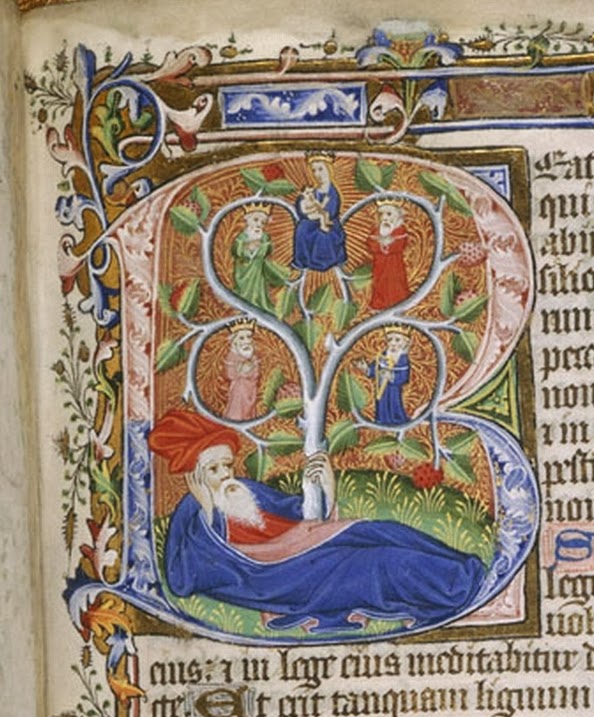 B
eat
qui
abii
silio
rum
pecc
non
⁊ in
pesti
non
S
lege
eius: ⁊ in lege eius meditabitur
cte. Et erit tanquam lignum